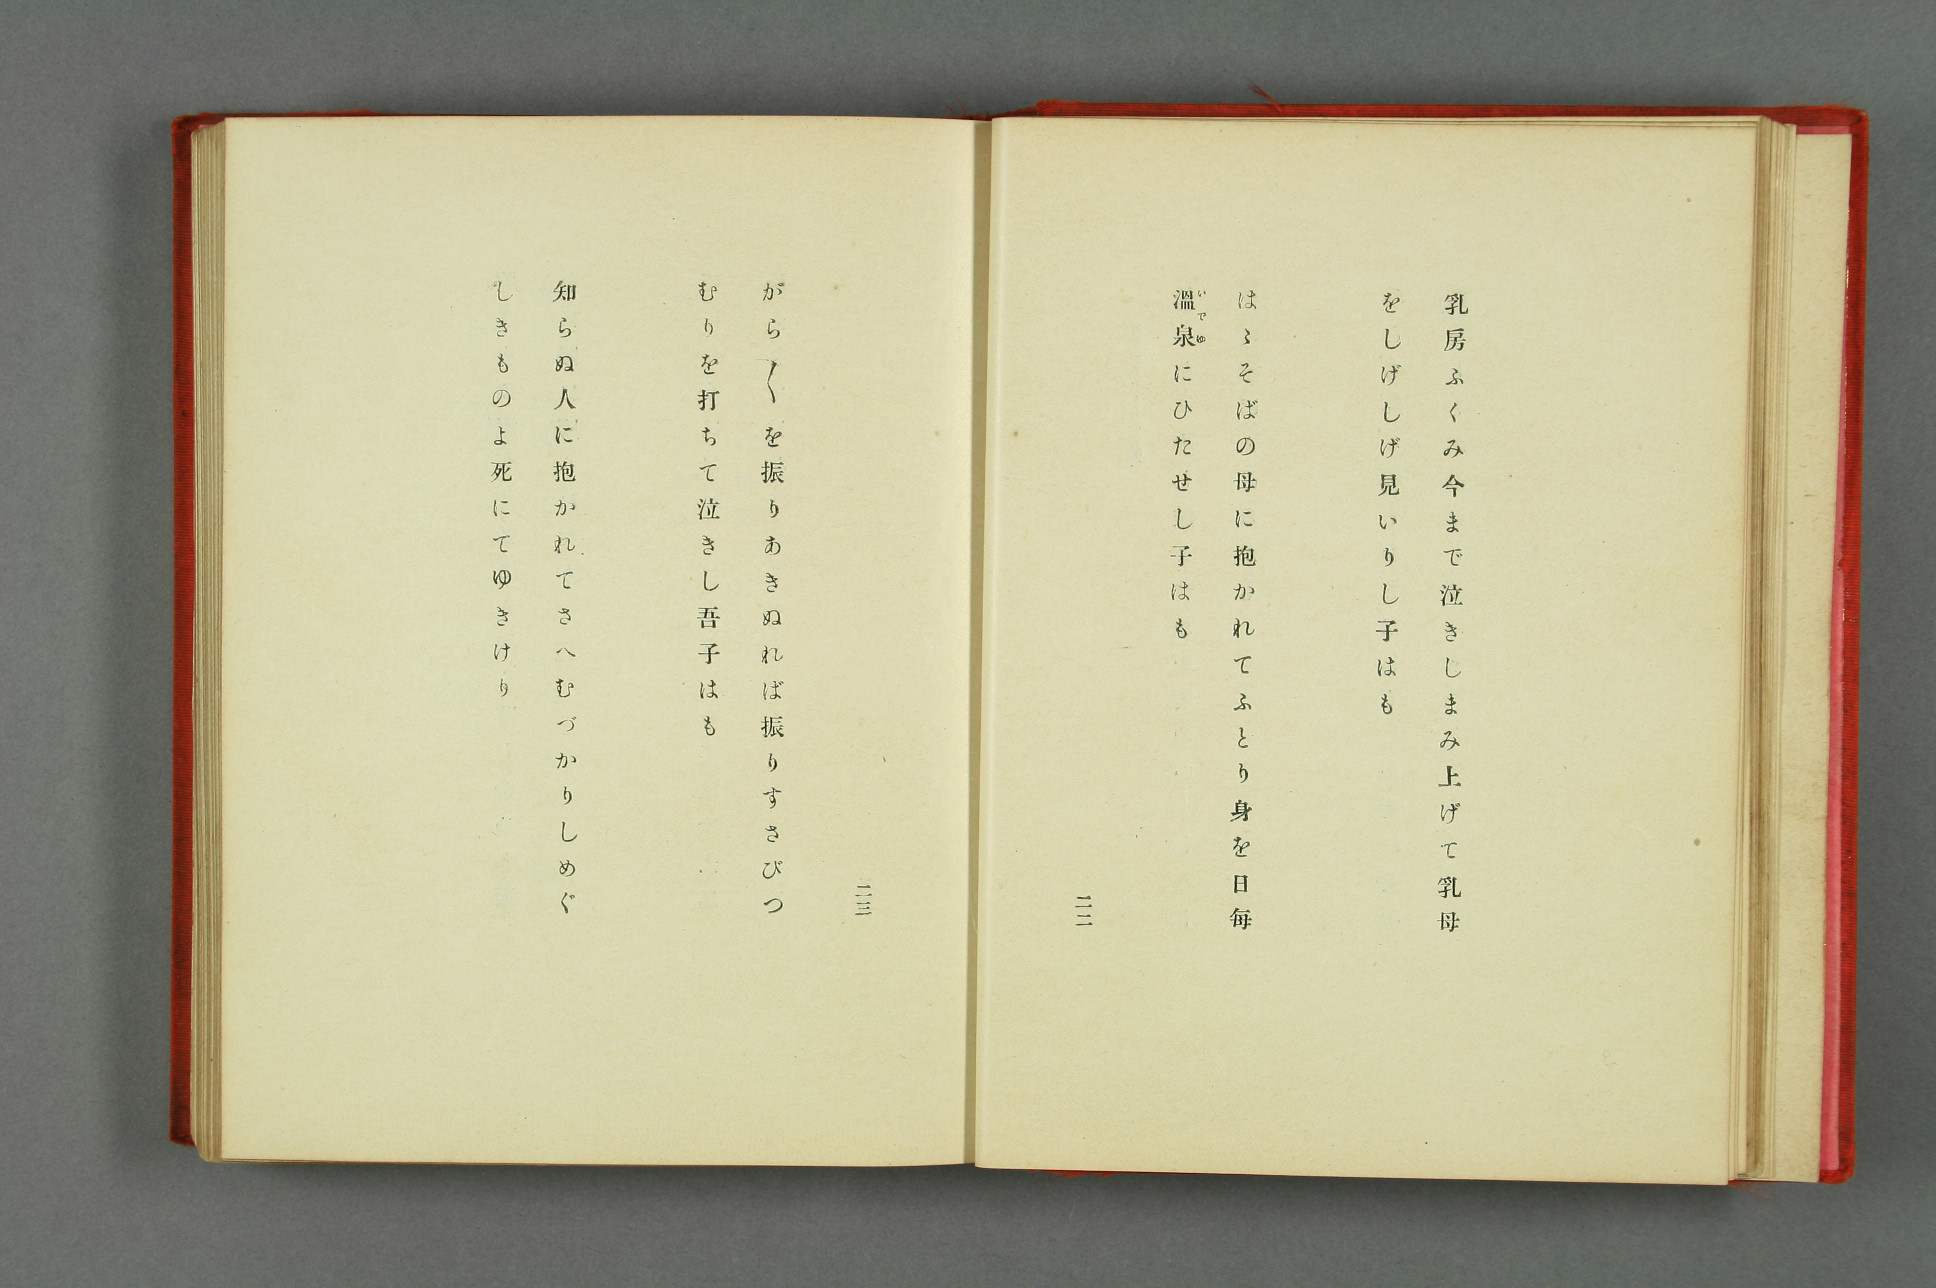 乳房ふくみ今まで泣きしまみ上げて乳母
をしげしげ見いりし子はも
はゝそばの母に抱かれてふとり身を日毎
溫泉にひたせし子はも
いでゆ
二二
がら〳〵を振りあきぬれば振りすさびつ
むりを打ちて泣きし吾子はも
知らぬ人に抱かれてさへむづかりしめぐ
しきものよ死にてゆきけり
二三